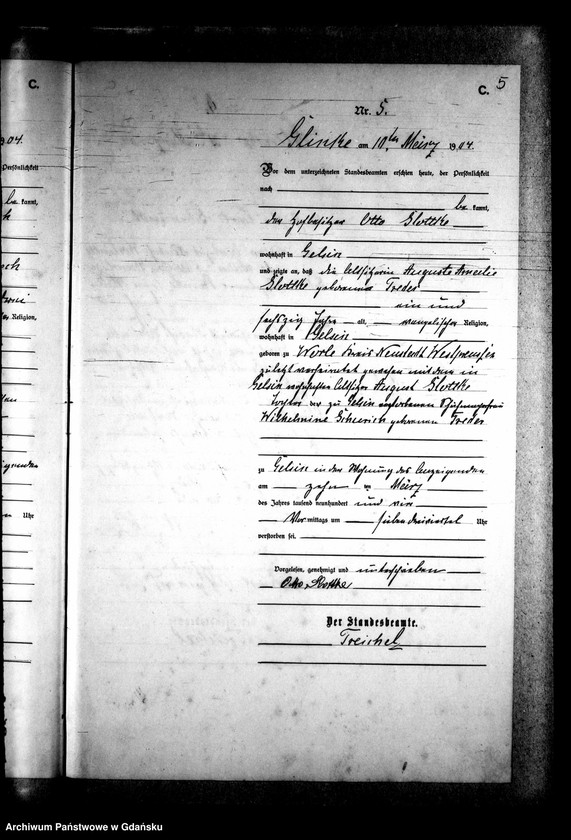 C.
904.
Persönlichkeit
be kannt,
Religion,
Uhr
C. 5
Nr. 5.
Glinke am 10ten März 1904.
Vor dem unterzeichneten Standesbeamten erschien heute, der Persönlichkeit
nach
be kannt,
der Hofbesitzer Otto Slottke
wohnhaft in Gelsin
und zeigte an, daß die Altsitzerin Auguste Amalie
Slottke geborene Treder
ein und
sechszig Jahre alt, evangelischer Religion,
wohnhaft in Gelsin
geboren zu Worle Kreis Neustadt Westpreußen
zuletzt verheiratet gewesen mit dem in
Gelsin Altsitzer August Slottke
Tochter der zu Gelsin verstorbenen
Wilhelmine geborenen Treder
zu Gelsin in der Wohnung des Anzeigenden
am zehn ten März
des Jahres tausend neunhundert und vier
Vor mittags um sieben dreiviertel Uhr
verstorben sei.
Vorgelesen, genehmigt und unterschrieben
Otto Slottke
Der Standesbeamte.
Treichel
Archiwum Państwowe w Gdańsku